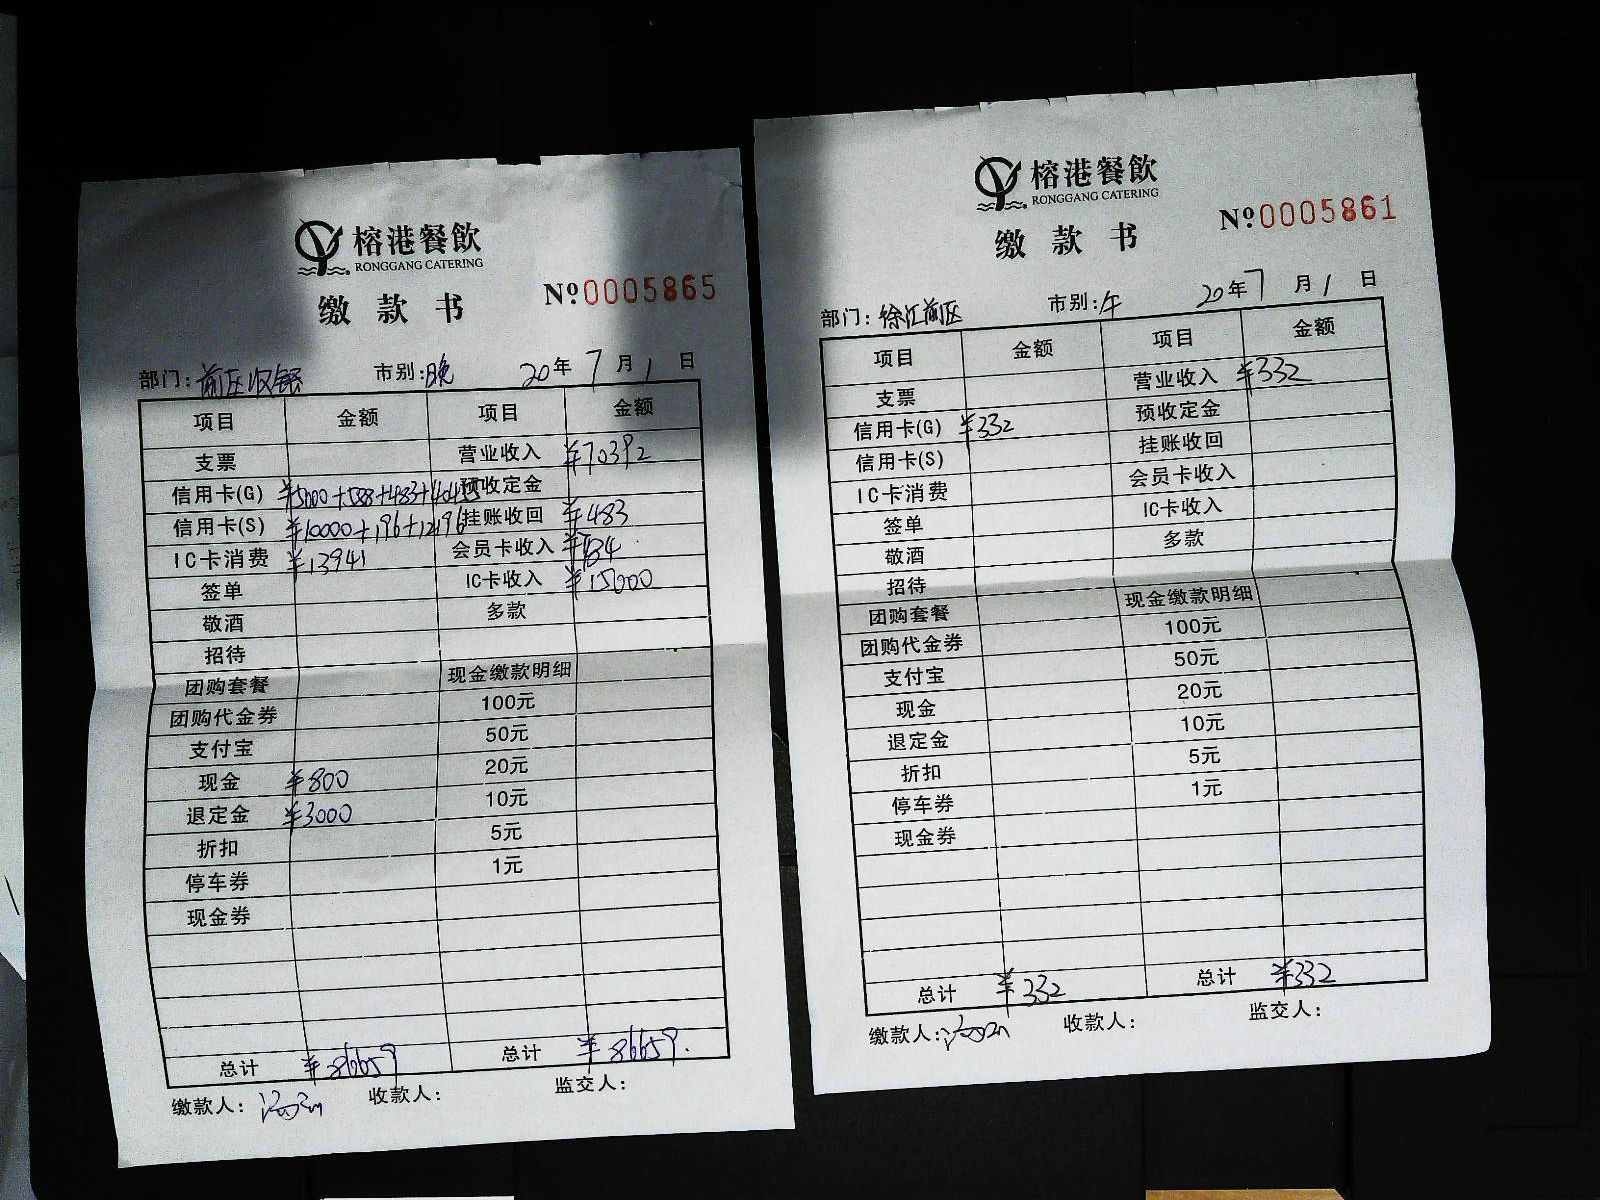 榕港餐飲
RONGGANG CATERING
缴款书
Nº0005865
部门：前区收银 市别：晚 20年7月1日
项目 金额 项目 金额
支票 营业收入 ¥70392
信用卡(G) ¥5000+588+483+ 预收定金
信用卡(S) ¥10000+196+12196 挂账收回 ¥483
IC卡消费 ¥13941 会员卡收入 ¥784
签单 IC卡收入 ¥15000
敬酒 多款
招待
团购套餐 现金缴款明细
团购代金券 100元
支付宝 50元
现金 ¥800 20元
退定金 ¥3000 10元
折扣 5元
停车券 1元
现金券
总计 ¥86659 总计 ¥86659.
缴款人： 收款人： 监交人：
榕港餐飲
RONGGANG CATERING
缴款书
Nº0005861
部门：徐汇前区 市别：午 20年7月1日
项目 金额 项目 金额
支票 营业收入 ¥332
信用卡(G) ¥332 预收定金
信用卡(S) 挂账收回
IC卡消费 会员卡收入
签单 IC卡收入
敬酒 多款
招待
团购套餐 现金缴款明细
团购代金券 100元
支付宝 50元
现金 20元
退定金 10元
折扣 5元
停车券 1元
现金券
总计 ¥332 总计 ¥332
缴款人： 收款人： 监交人：